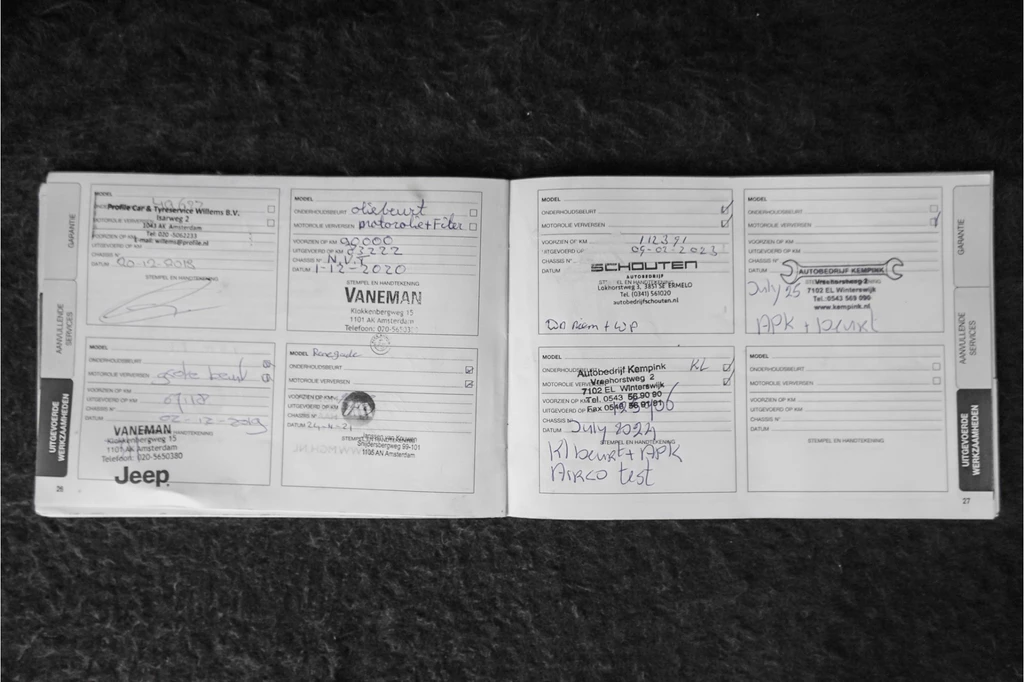 GARANTIE
AANVULLENDE
SERVICES
UITGEVOERDE
WERKZAAMHEDEN
26
MODEL
Profile Car & Tyreservice Willems B.V.
Isarweg 2
1043 AK Amsterdam
Tel: 020-5062233
E-mail: willems@profile.nl
DATUM 20-12-2018
STEMPEL EN HANDTEKENING
MODEL
ONDERHOUDSBEURT oliebeurt
MOTOROLIE VERVERSEN motorolie+Filter
VOORZIEN OP KM 90.000
UITGEVOERD OP KM 93222
CHASSIS N° N.V.T
DATUM 1-12-2020
STEMPEL EN HANDTEKENING
VANEMAN
Klokkenbergweg 15
1101 AK Amsterdam
Telefoon: 020-5650380
MODEL
ONDERHOUDSBEURT
MOTOROLIE VERVERSEN grote beurt
VOORZIEN OP KM
UITGEVOERD OP KM
CHASSIS N°
DATUM 02-12-2019
STEMPEL EN HANDTEKENING
VANEMAN
Klokkenbergweg 15
1101 AK Amsterdam
Telefoon: 020-5650380
Jeep
MODEL Renegade
ONDERHOUDSBEURT
MOTOROLIE VERVERSEN
VOORZIEN OP KM
UITGEVOERD OP KM
CHASSIS N°
DATUM
STEMPEL EN HANDTEKENING
Snijdersbergweg 99-101
1105 AN Amsterdam
MODEL
ONDERHOUDSBEURT
MOTOROLIE VERVERSEN
VOORZIEN OP KM 112391
UITGEVOERD OP 09-02-2023
CHASSIS N°
DATUM
SCHOUTEN
AUTOBEDRIJF
STEMPEL EN HANDTEKENING
Lokhorstweg 3, 3851 SE ERMELO
Tel. (0341) 561020
autobedrijfschouten.nl
MODEL
ONDERHOUDSBEURT
MOTOROLIE VERVERSEN
VOORZIEN OP KM
UITGEVOERD OP KM
CHASSIS N°
DATUM
AUTOBEDRIJF KEMPINK
Vreehorstweg 2
7102 EL Winterswijk
Tel.:0543 569 090
www.kempink.nl
July 25
APK + beurt
MODEL
ONDERHOUDSBEURT KL
MOTOROLIE VERVERSEN
VOORZIEN OP KM
UITGEVOERD OP
CHASSIS N°
DATUM July 2024
Autobedrijf Kempink
Vreehorstweg 2
7102 EL Winterswijk
Tel. 0543 56 90 90
STEMPEL EN HANDTEKENING
Kl beurt + APK
AIRCO test
MODEL
ONDERHOUDSBEURT
MOTOROLIE VERVERSEN
VOORZIEN OP KM
UITGEVOERD OP KM
CHASSIS N°
DATUM
STEMPEL EN HANDTEKENING
GARANTIE
AANVULLENDE
SERVICES
UITGEVOERDE
WERKZAAMHEDEN
27